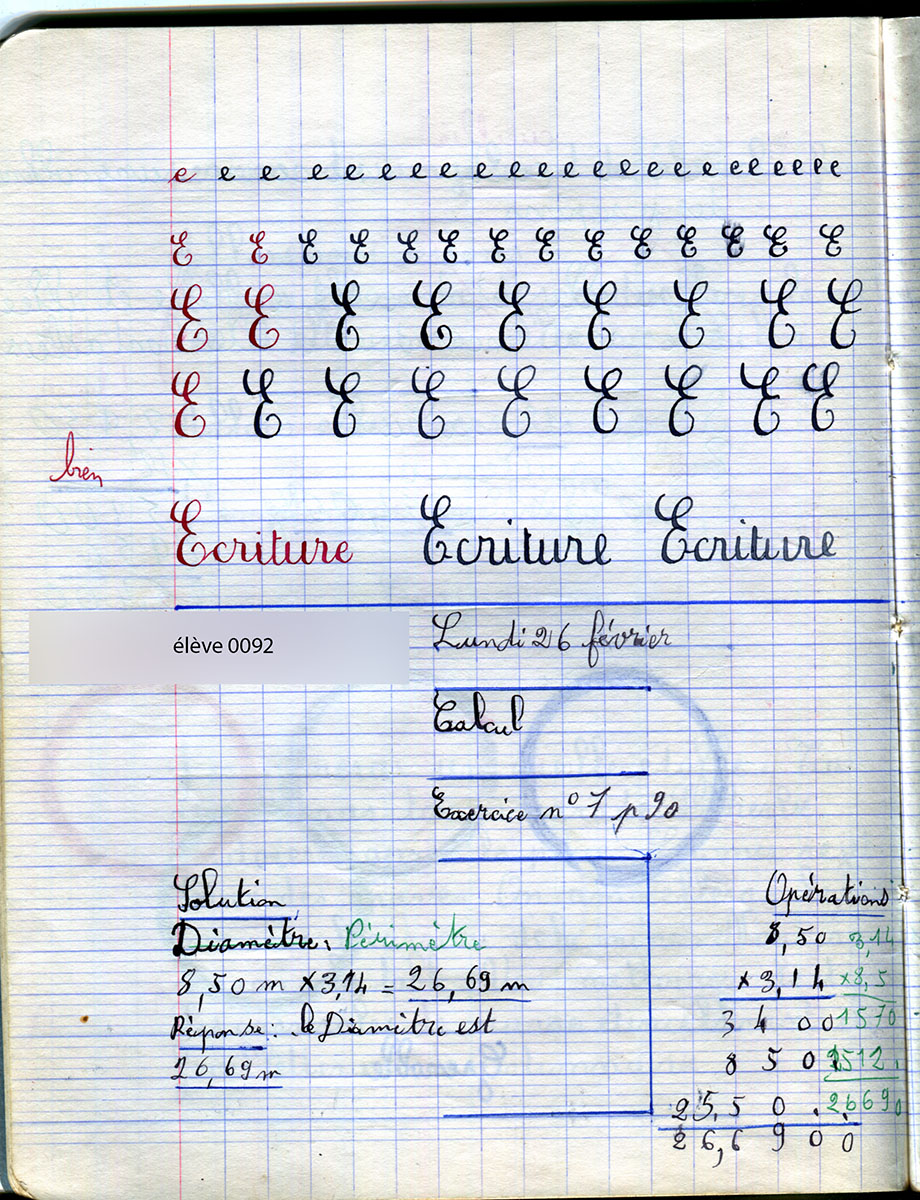 e e e e e e e e e e e e e e e e e e e e e e
E E E E E E E E E E E E E E
E E E E E E E E E
E E E E E E E E E
bien
Ecriture Ecriture Ecriture
élève 0092
Lundi 26 février
Calcul
Exercice n° 7 p 90
Solution
Diamètre: Périmètre
8,50 m × 3,14 = 26,69 m
Réponse: le Diamètre est
26,69 m
Opérations
8,50 3,14
×3,14 ×8,5
3 4 0 0 1570
8 5 0 . 2512.
2 5,5 0 . . 26690
2 6,6 9 0 0